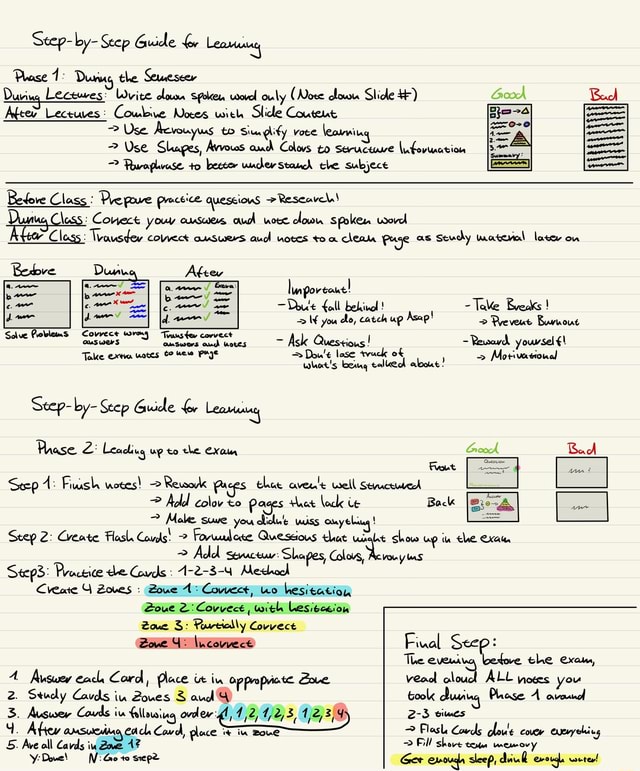 Step-by-Step Guide for Learning
Phase 1: During the Semester
During Lectures: Write down spoken word only (Note down Slide #)
After Lectures: Combine Notes with Slide Content
→ Use Acronyms to simplify rote learning
→ Use Shapes, Arrows and Colors to Structure Information
→ Paraphrase to better understand the subject
Good
Bad
1.
2.
3.
Summary:
Before Class: Prepare practice questions → Research!
During Class: Correct your answers and note down spoken word
After Class: Transfer correct answers and notes to a clean page as study material later on
Before
During
After
a.
b.
c.
d.
a.
b.
c.
d.
a.
b.
c.
d.
Extra
Solve Problems
Correct wrong answers
Take extra notes
Transfer correct answers and notes to new page
Important!
- Don't fall behind!
→ If you do, catch up Asap!
- Ask Questions!
→ Don't lose track of
what's being talked about!
- Take Breaks!
→ Prevent Burnout
- Reward yourself!
→ Motivational
Step-by-Step Guide for Learning
Phase 2: Leading up to the exam
Good
Bad
Front
Back
Question
Answer
Step 1: Finish notes! → Rework pages that aren't well structured
→ Add color to pages that lack it
→ Make sure you didn't miss anything!
Step 2: Create Flash Cards! → Formulate Questions that might show up in the exam
→ Add structur: Shapes, Colors, Acronyms
Step3: Practice the Cards: 1-2-3-4 Method
Create 4 Zones: Zone 1: Correct, no hesitation
Zone 2: Correct, with hesitation
Zone 3: Partially Correct
Zone 4: Incorrect
1. Answer each Card, place it in appropriate Zone
2. Study Cards in Zones 3 and 4
3. Answer Cards in following order: 1,1,2,1,2,3,1,2,3,4
4. After answering each Card, place it in zone
5. Are all Cards in Zone 1?
Y: Done! N: Go to step2
Final Step:
The evening before the exam,
read aloud ALL notes you
took during Phase 1 around
2-3 times
→ Flash Cards don't cover everything
→ Fill short term memory
Get enough sleep, drink enough water!